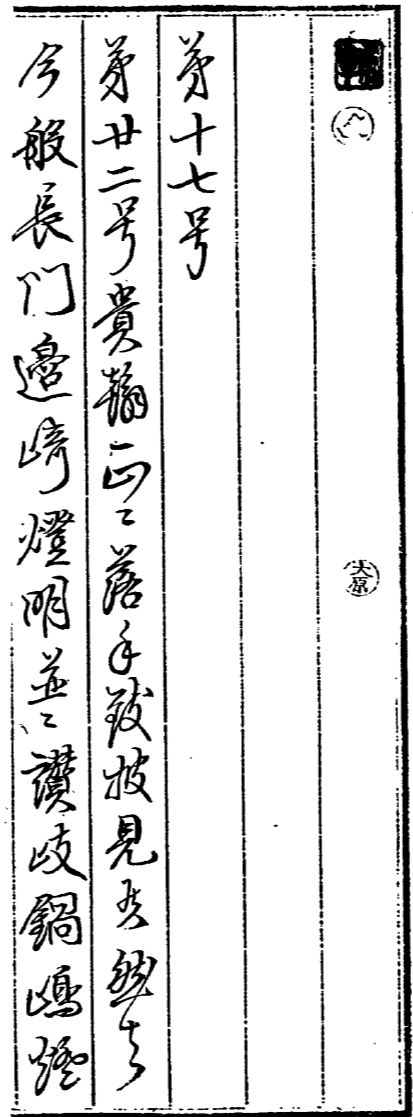 大原
第十七号
第廿二号貴翰正ニ落手致披見候然者
今般長門邉崎燈明並ニ讃岐鍋嶋燈